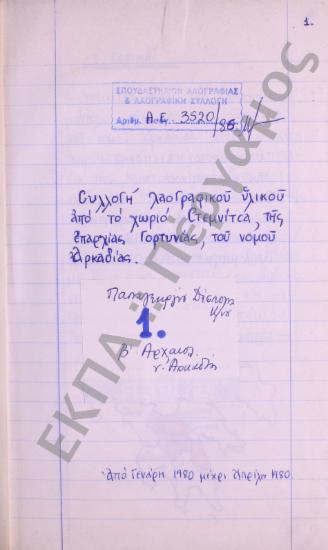 1.
ΣΠΟΥΔΑΣΤΗΡΙΟΝ ΛΑΟΓΡΑΦΙΑΣ
& ΛΑΟΓΡΑΦΙΚΗ ΣΥΛΛΟΓΗ
Αριθμ. Εισαγ. Α.Ε. 3520/86
Συλλογή λαογραφικοῦ ὑλικοῦ
ἀπό τό χωριό Στεμνίτσα, τῆς
ἐπαρχίας Γορτυνίας, τοῦ νομοῦ
Ἀρκαδίας.
Παπαγεωργίου
1.
Β' Αρχαιολ.
ν. Αρκαδίας
Ἀπό Γενάρη 1980 μέχρι Ἀπρίλη 1980.
ΕΚΠΑ .:. Πέργαμος